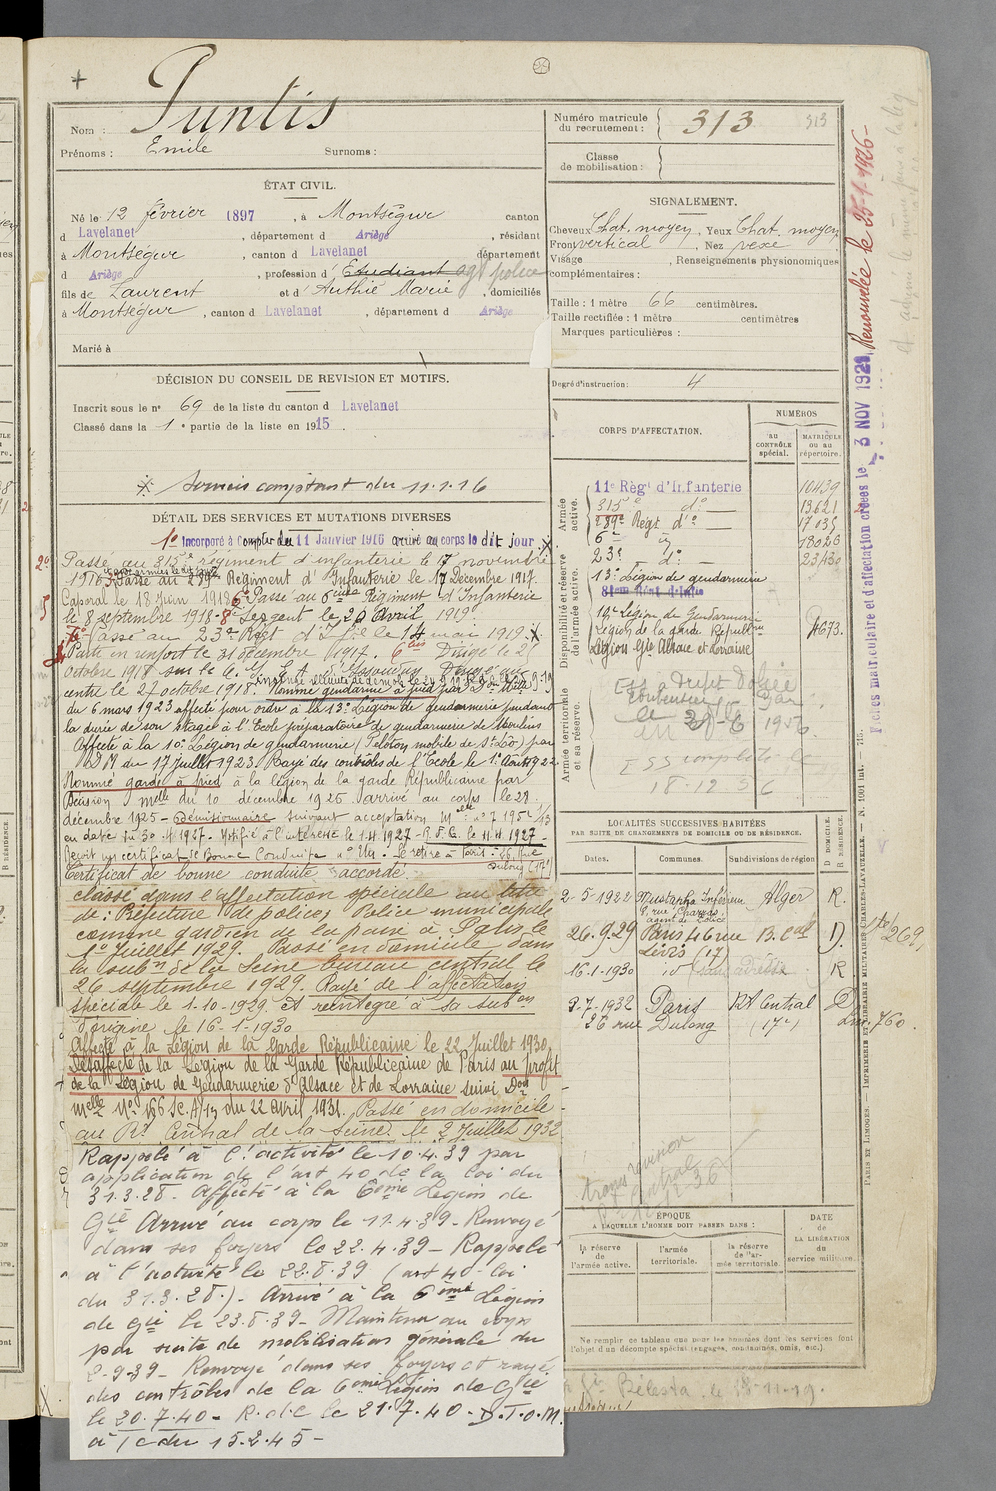 Nom : Puntis
Prénoms : Emile Surnoms :
Numéro matricule du recrutement : 313
313
Classe de mobilisation :
ÉTAT CIVIL.
Né le 12 février 1897, à Montségur canton
d Lavelanet, département d Ariège, résidant
à Montségur, canton d Lavelanet département
d Ariège, profession d' Etudiant agt police
fils de Laurent et d' Authié Marie, domiciliés
à Montségur, canton d Lavelanet, département d Ariège
Marié à
SIGNALEMENT.
Cheveux Chat. moyen, Yeux Chat. moyen
Front vertical, Nez vexe
Visage , Renseignements physionomiques
complémentaires :
Taille : 1 mètre 66 centimètres.
Taille rectifiée : 1 mètre centimètres
Marques particulières :
Degré d'instruction : 4
DÉCISION DU CONSEIL DE REVISION ET MOTIFS.
Inscrit sous le n° 69 de la liste du canton d Lavelanet
Classé dans la 1e partie de la liste en 1915.
Services comptant du 11.1.16
DÉTAIL DES SERVICES ET MUTATIONS DIVERSES
1° Incorporé à compter du 11 Janvier 1916 arrivé au corps le dit jour
2° Passé au 315e régiment d'infanterie le 17 novembre
1916 3° Passé au 289e Régiment d'Infanterie le 17 Décembre 1917.
Caporal le 18 Juin 1918 6° Passé au 6ème Régiment d'Infanterie
le 8 septembre 1918 - 8° Sergent le 26 Avril 1919
7° Passé au 23e Régt d'Ifie le 14 mai 1919.
Parti en renfort le 31 décembre 1917. 6bis Dirigé le 21
octobre 1918 sur le C. I. d'Issoudun Dirigé
centre le 27 octobre 1918. Nommé gendarme à pied par Don Mlle
du 6 mars 1923 affecté pour ordre à la 13e Légion de gendarmerie pendant
la durée de son stage à l'Ecole préparatoire de gendarmerie de Moulins
Affecté à la 10e Légion de gendarmerie (Peloton mobile de St Lô) par
D M du 17 Juillet 1923. Rayé des contrôles de l'Ecole le 1er Août 1922
Nommé garde à pied à la légion de la garde Républicaine par
Décision Mlle du 10 décembre 1925 arrivé au corps le 28
décembre 1925 - Démissionnaire suivant acceptation
en date du 30
Reçoit un certificat de Bonne Conduite Se retire à Paris. 26 Rue Dulong (17e)
Certificat de bonne conduite accordé.
classé dans l'affectation spéciale au titre
de : Préfecture de police, Police municipale
comme gardien de la paix à Paris le
1er Juillet 1929. Passé en domicile dans
la subon de la Seine bureau central le
26 septembre 1929. Rayé de l'affectation
spéciale le 1-10-1929 et réintégré à sa subon
d'origine le 16-1-1930
Affecté à la Légion de la Garde Républicaine le 22 Juillet 1930.
Désaffecté de la Légion de la Garde Républicaine de Paris au profit
de la Légion de Gendarmerie d'Alsace et de Lorraine suivt Don
Melle du 22 avril 1931. Passé en domicile
au Rt Central de la Seine le 2 Juillet 1932
Rappelé à l'activité le 10.4.39 par
application de l'art 40 de la loi du
31.3.28. Affecté à la 6ème Légion de
Gie Arrivé au corps le 11.4.39 - Renvoyé
dans ses foyers le 22.4.39 - Rappelé
à l'activité le 22.8.39 (art 40 loi
du 31.3.28) - Arrivé à la 6ème Légion
de Gie le 23.8.39 - Maintenu au corps
par suite de mobilisation générale du
2-9-39 - Renvoyé dans ses foyers et rayé
des contrôles de la 6ème Légion de Gie
le 20.7.40 - R.d.C le 21.7.40 - D.T.O.M.
à /c du 15.2.45 -
CORPS D'AFFECTATION.
NUMÉROS
AU CONTRÔLE spécial.
MATRICULE ou au répertoire.
Armée active.
11e Régt d'Infanterie 10439
315e d° 13621
289e Régt d° 17035
6e d° 18026
23e d° 23430
Disponibilité et réserve de l'armée active.
13e Légion de gendarmerie
10e légion de Gendarmerie
Légion de la garde Républne 4673.
Légion Gie Alsace et Lorraine
Armée territoriale et sa réserve.
ESS complété le
18-12 56
LOCALITÉS SUCCESSIVES HABITÉES
PAR SUITE DE CHANGEMENTS DE DOMICILE OU DE RÉSIDENCE.
Dates. Communes. Subdivisions de région D. DOMICILE. R. RÉSIDENCE.
2-5-1922 Mustapha Inférieur Alger R.
agent de police
26.9.29 Paris 46 rue B. Cal D.
Lévis (17)
16.1-1930 id sans adresse R
2-7-1932 Paris Rt Central D
26 rue Dulong (17e)
ÉPOQUE
A LAQUELLE L'HOMME DOIT PASSER DANS :
DATE de LA LIBÉRATION du service militaire.
la réserve de l'armée active.
l'armée territoriale.
la réserve de l'armée territoriale.
Ne remplir ce tableau que pour les hommes dont les services font
l'objet d'un décompte spécial (engagés, condamnés, omis, etc.).
Bélesta, le 18-11-19.
Renouvelée le 25-1-1926-
Fiches matriculaire et d'affectation créées le 3 NOV 1921
PARIS ET LIMOGES. — IMPRIMERIE ET LIBRAIRIE MILITAIRES CHARLES-LAVAUZELLE. — N. 1001 int. — 715.